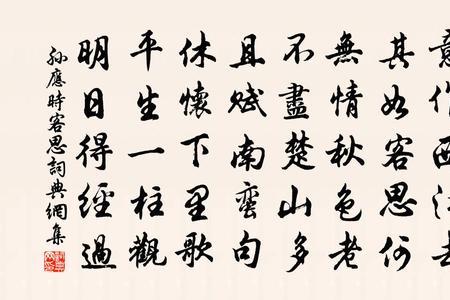 作西江去
其如客思何
無情秋色老
不盡楚山多
且賦南蠻句
休懷下里歌
平生一柱觀
明日得經過
孫應時客思詞典網集